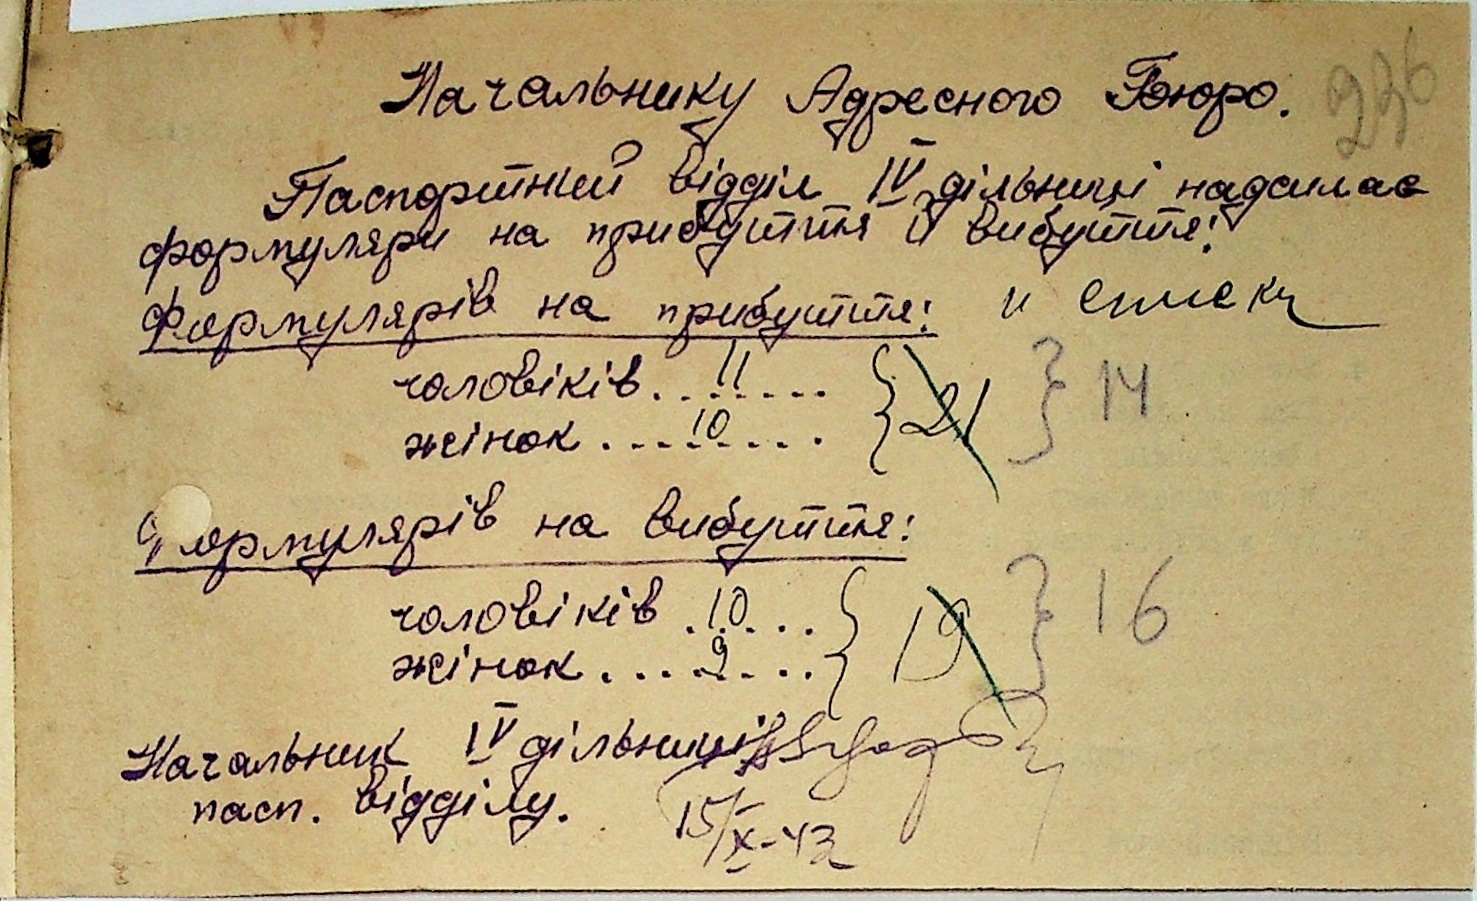 Начальнику Адресного Бюро.
236
Паспортний відділ IV дільниці надсилає
формуляри на прибуття й вибуття:
Формулярів на прибуття: и списки
чоловіків . 11 . . . . } 21 } 14
жінок . . . 10 . . . .
Формулярів на вибуття:
чоловіків . 10 . . . } 19 } 16
жінок . . . . 9 . . . .
Начальник IV дільниці
пасп. відділу.
15/X-43